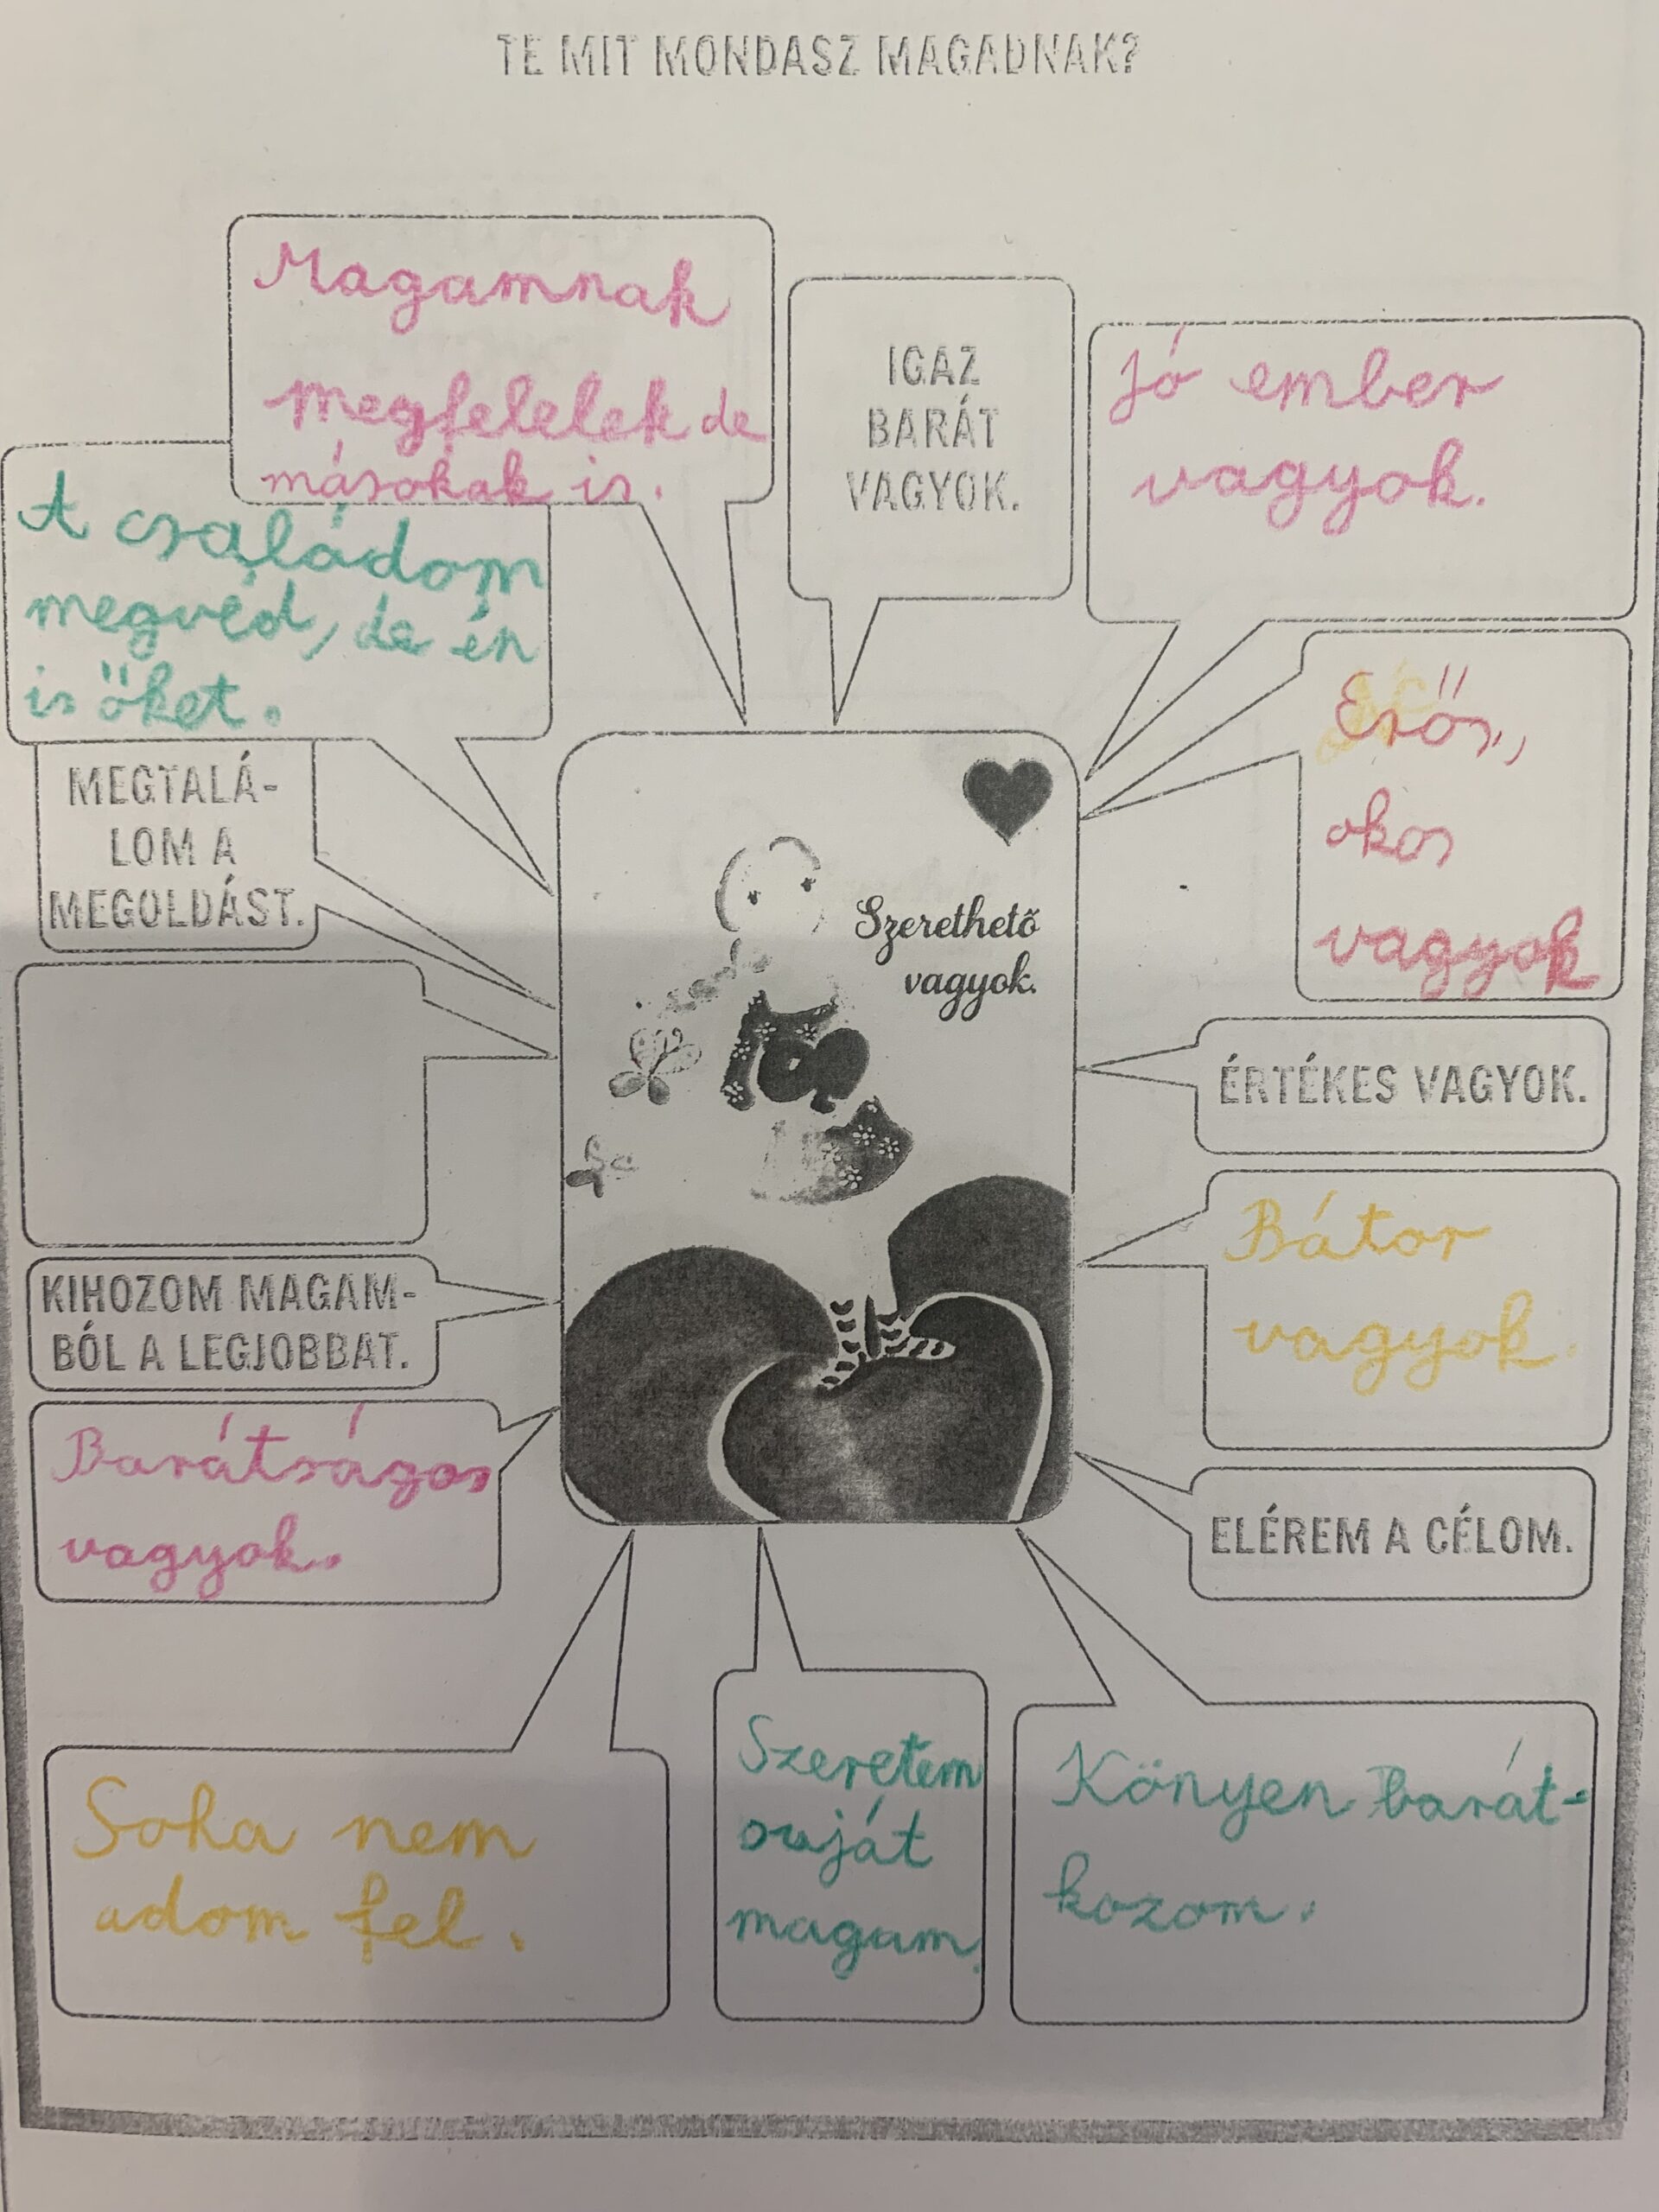 TE MIT MONDASZ MAGADNAK?
Magamnak
megfelelek de
másokak is.
IGAZ
BARÁT
VAGYOK.
Jó ember
vagyok.
A családom
megvéd, de én
is őket.
Erős,
okos
vagyok
MEGTALÁ-
LOM A
MEGOLDÁST.
Szerethető
vagyok.
ÉRTÉKES VAGYOK.
Bátor
vagyok.
KIHOZOM MAGAM-
BÓL A LEGJOBBAT.
Barátságos
vagyok.
ELÉREM A CÉLOM.
Soha nem
adom fel.
Szeretem
saját
magam.
Könyen barát-
kozom.